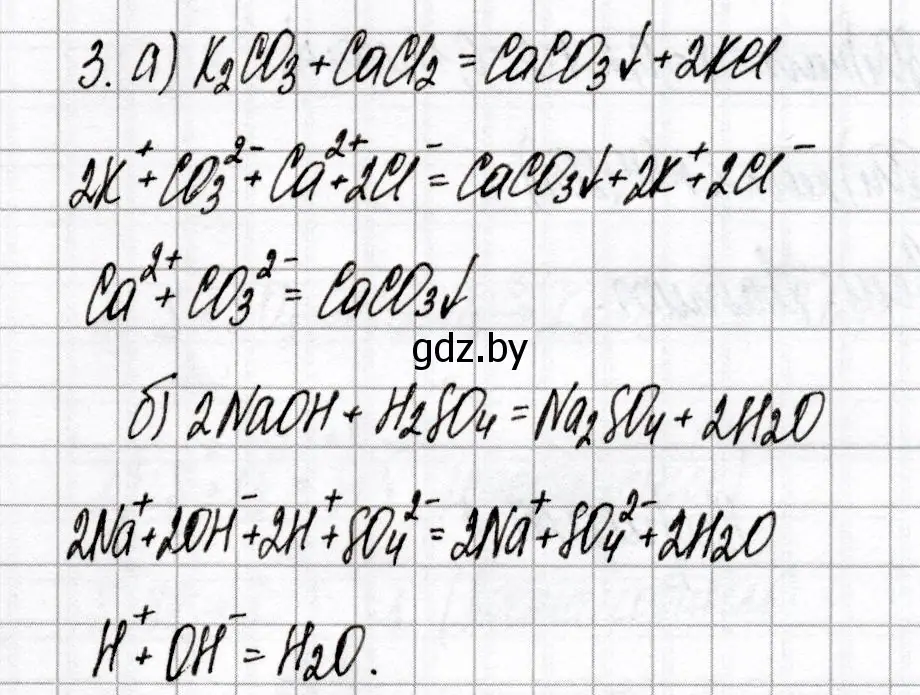 3. а) K₂CO₃ + CaCl₂ = CaCO₃↓ + 2KCl
2K⁺ + CO₃²⁻ + Ca²⁺ + 2Cl⁻ = CaCO₃↓ + 2K⁺ + 2Cl⁻
Ca²⁺ + CO₃²⁻ = CaCO₃↓
gdz.by
б) 2NaOH + H₂SO₄ = Na₂SO₄ + 2H₂O
2Na⁺ + 2OH⁻ + 2H⁺ + SO₄²⁻ = 2Na⁺ + SO₄²⁻ + 2H₂O
H⁺ + OH⁻ = H₂O.